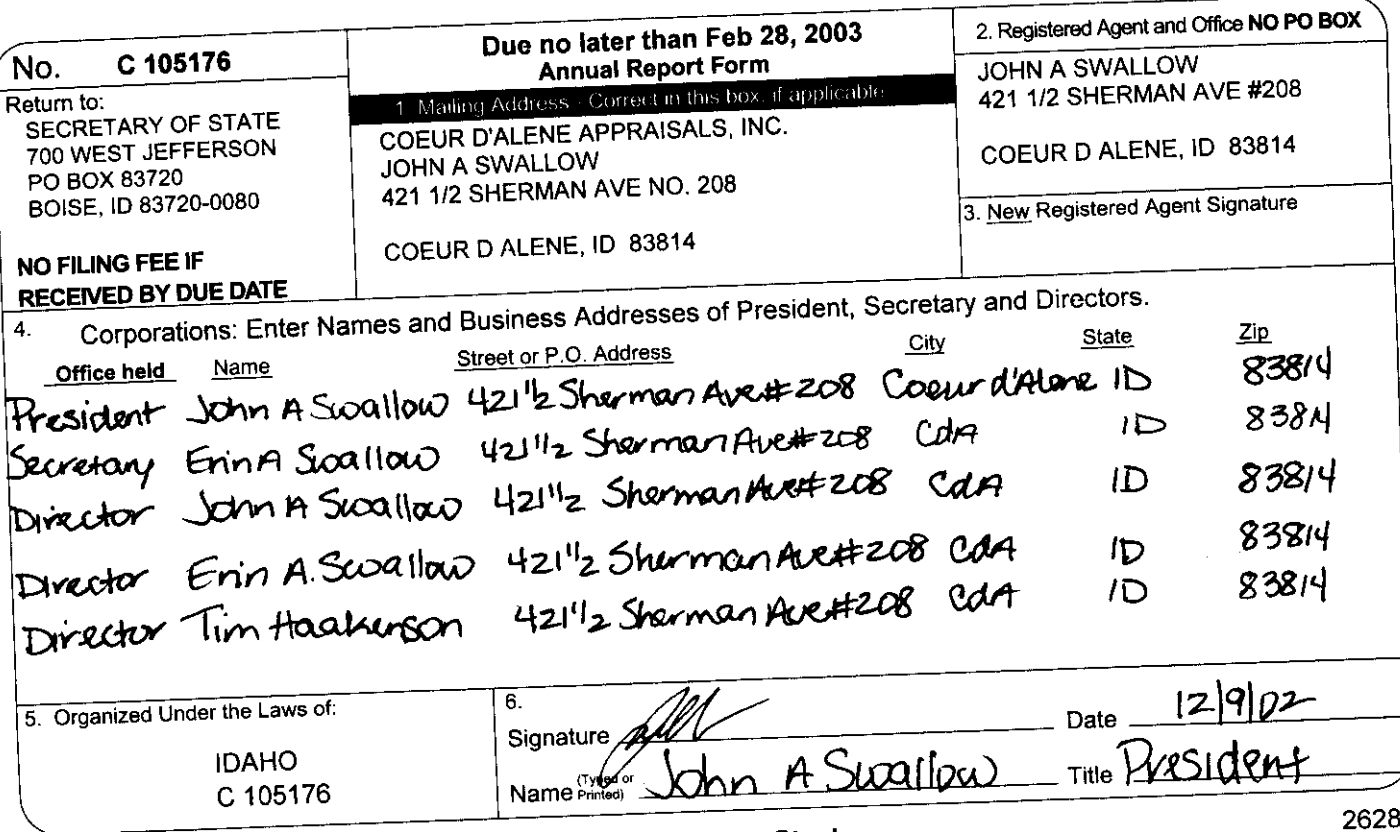 No. C 105176
Return to:
SECRETARY OF STATE
700 WEST JEFFERSON
PO BOX 83720
BOISE, ID 83720-0080
NO FILING FEE IF
RECEIVED BY DUE DATE
Due no later than Feb 28, 2003
Annual Report Form
1. Mailing Address - Correct in this box, if applicable
COEUR D'ALENE APPRAISALS, INC.
JOHN A SWALLOW
421 1/2 SHERMAN AVE NO. 208
COEUR D ALENE, ID 83814
2. Registered Agent and Office NO PO BOX
JOHN A SWALLOW
421 1/2 SHERMAN AVE #208
COEUR D ALENE, ID 83814
3. New Registered Agent Signature
4. Corporations: Enter Names and Business Addresses of President, Secretary and Directors.
Office held Name Street or P.O. Address City State Zip
President John A Swallow 421 1/2 Sherman Ave #208 Coeur d'Alene ID 83814
Secretary Erin A Swallow 421 1/2 Sherman Ave #208 CdA ID 83814
Director John A Swallow 421 1/2 Sherman Ave #208 CdA ID 83814
Director Erin A. Swallow 421 1/2 Sherman Ave #208 CdA ID 83814
Director Tim Haakenson 421 1/2 Sherman Ave #208 CdA ID 83814
5. Organized Under the Laws of:
IDAHO
C 105176
6.
Signature Date 12/9/02
Name (Typed or Printed) John A Swallow Title President
2628